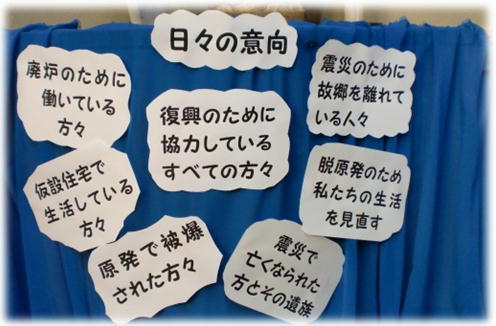 日々の意向
廃炉のために
働いている
方々
復興のために
協力している
すべての方々
震災のために
故郷を離れて
いる人々
仮設住宅で
生活している
方々
脱原発のため
私たちの生活
を見直す
原発で被爆
された方々
震災で
亡くなられた
方とその遺族